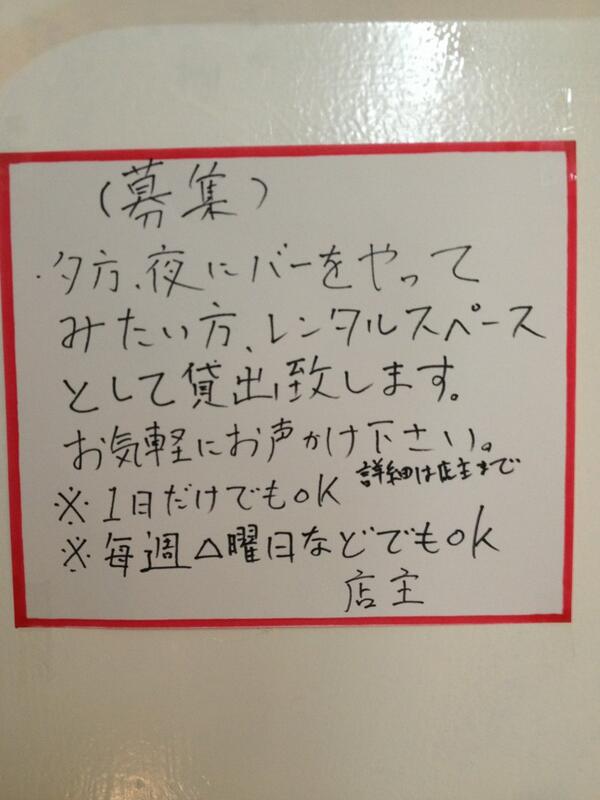 (募集)
・夕方、夜にバーをやって
みたい方、レンタルスペース
として貸出致します。
お気軽にお声かけ下さい。
詳細は店主まで
※1日だけでもOK
※毎週△曜日などでもOK
店主